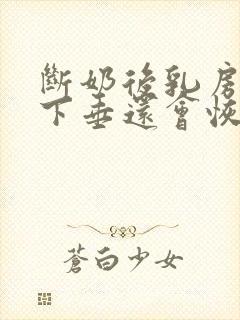 斷奶後乳房
下垂還會恢
蒼白少女